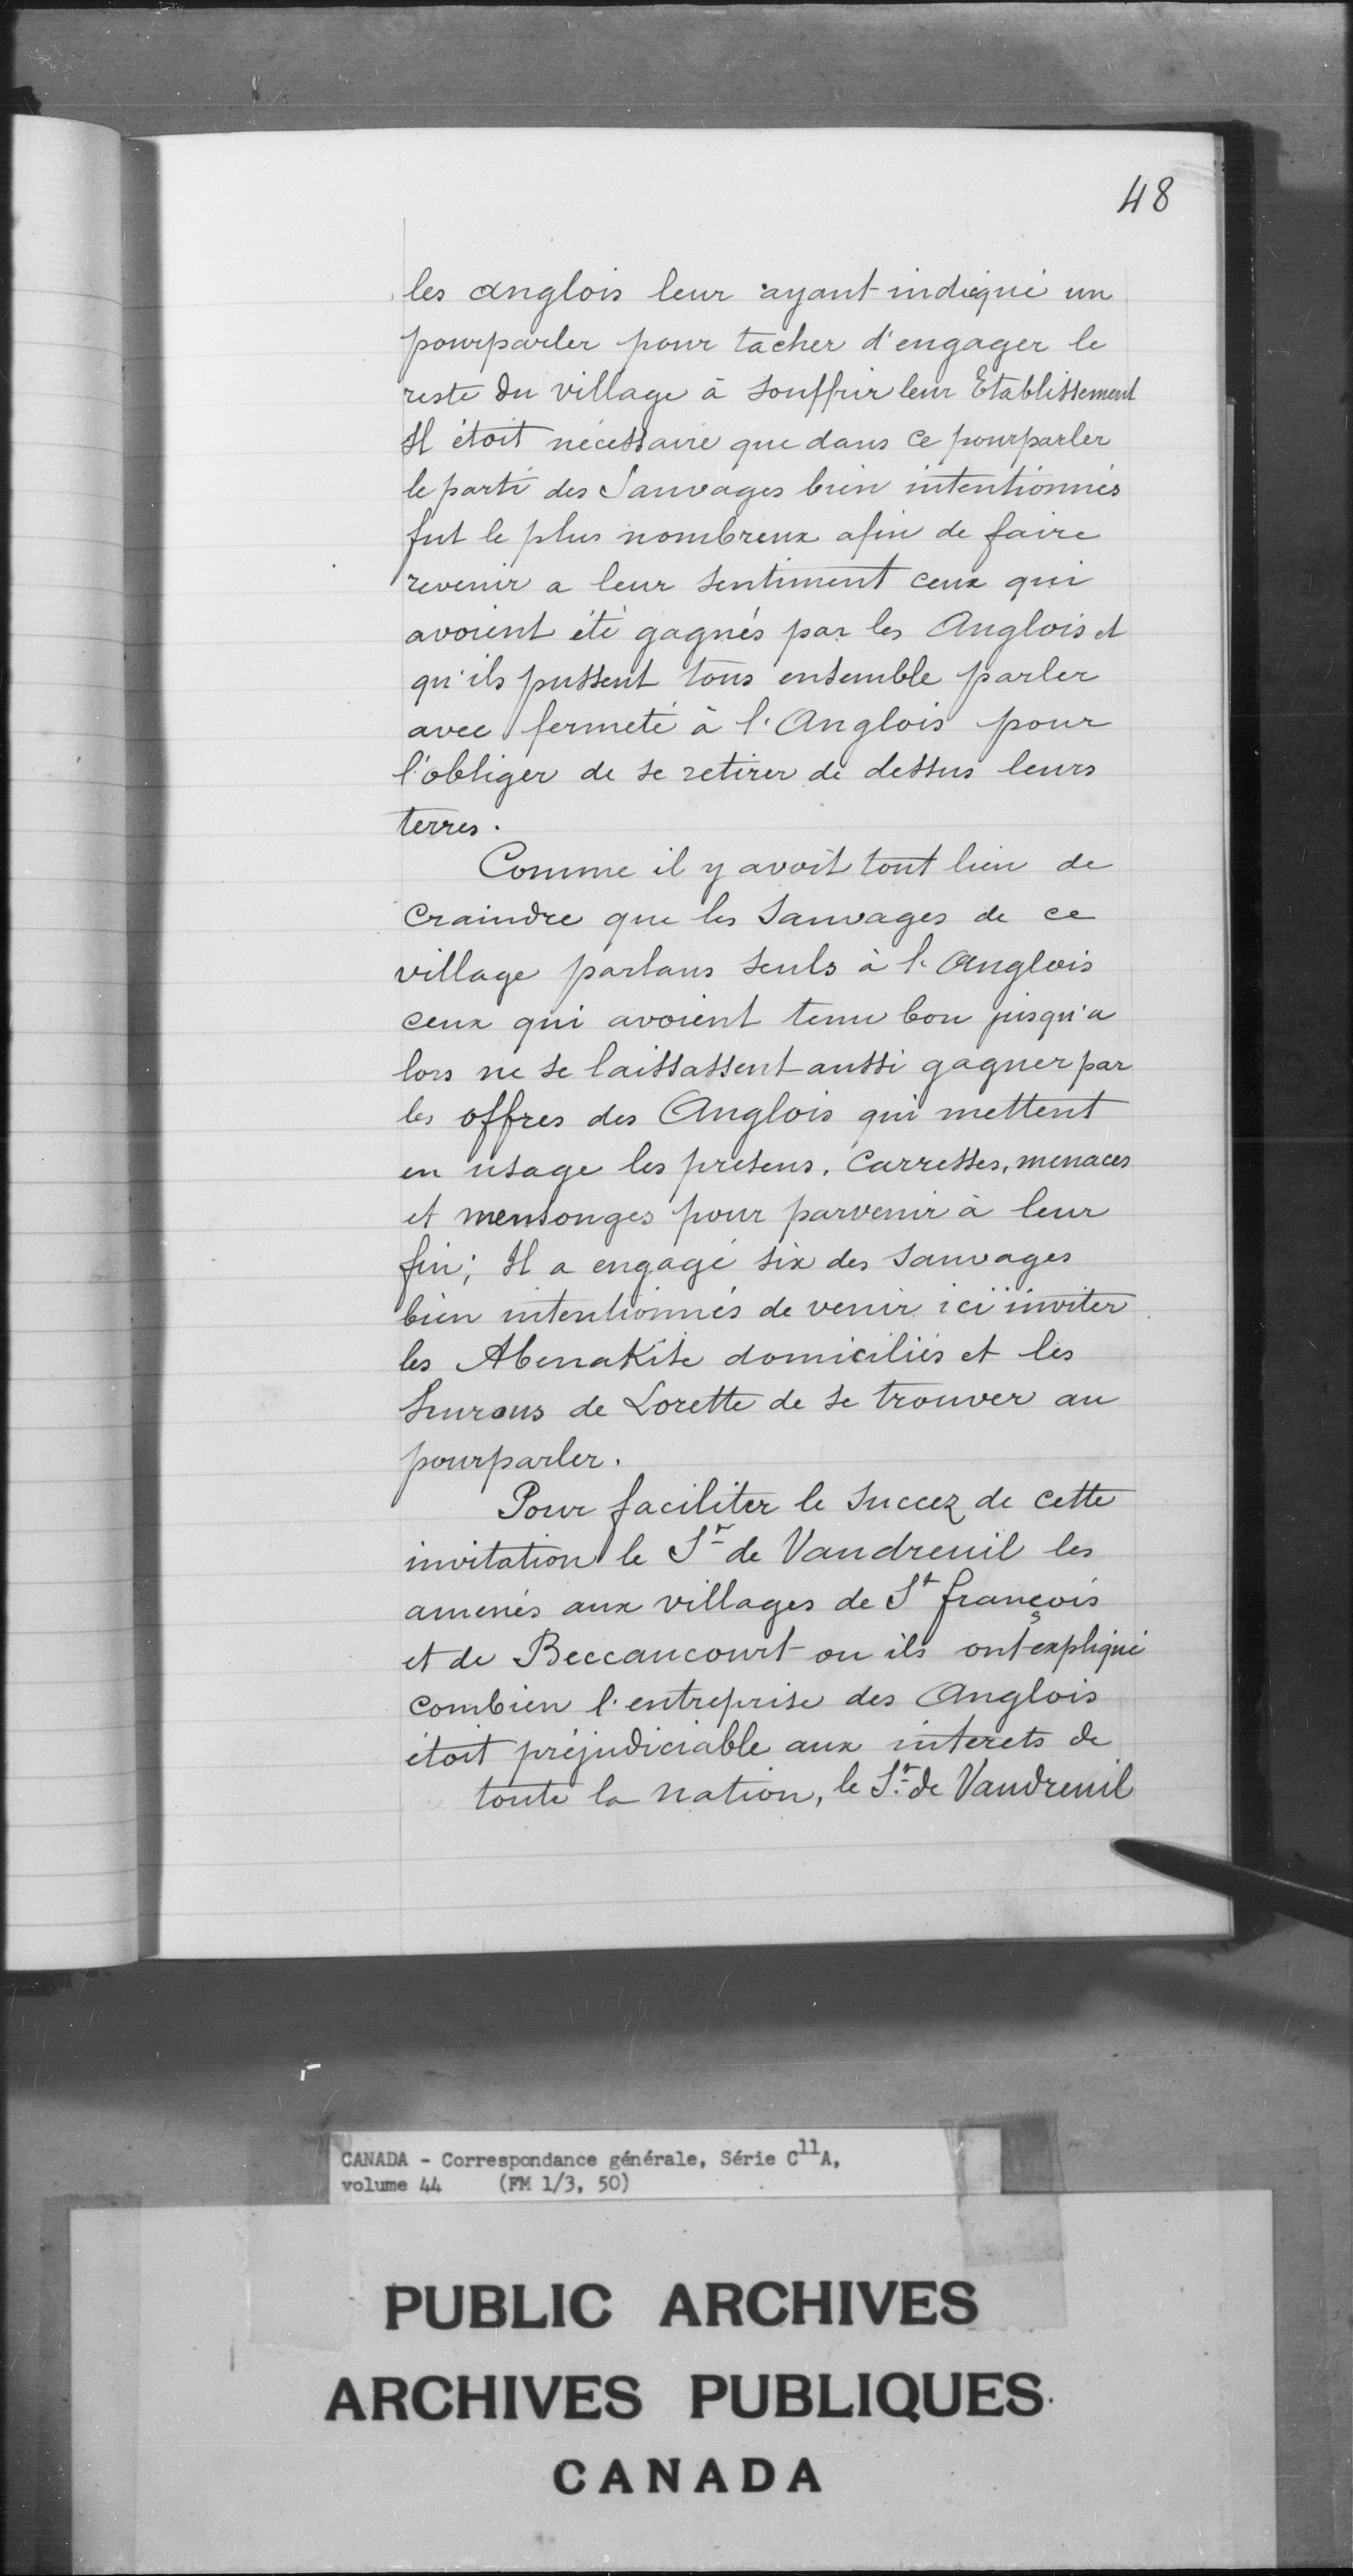 48
les anglois leur ayant indiqué un
pourparler pour tacher d'engager le
reste du village à souffrir leur Etablissement
Il étoit nécessaire que dans ce pourparler
le parti des Sauvages bien intentionnés
fut le plus nombreux afin de faire
revenir a leur sentiment ceux qui
avoient été gagnés par les Anglois et
qu'ils pussent tous ensemble parler
avec fermeté à l'Anglois pour
l'obliger de se retirer de dessus leurs
terres.
Comme il y avoit tout lieu de
craindre que les Sauvages de ce
village parlans seuls à l'Anglois
ceux qui avoient tenu bon jusqu'a
lors ne se laissassent aussi gagner par
les offres des Anglois qui mettent
en usage les presens, Carresses, menaces
et mensonges pour parvenir à leur
fin; Il a engagé six des Sauvages
bien intentionnés de venir ici inviter
les AbenaKis domiciliés et les
hurons de Lorette de se trouver au
pourparler.
Pour faciliter le Succez de cette
invitation le Sr de Vaudreuil les
amenés aux villages de St françois
et de Beccancourt ou ils ont expliqué
combien l'entreprise des Anglois
étoit préjudiciable aux interets de
toute la nation, le Sr. de Vaudreuil
CANADA - Correspondance générale, Série C11A,
volume 44 (FM 1/3, 50)
PUBLIC ARCHIVES
ARCHIVES PUBLIQUES
CANADA